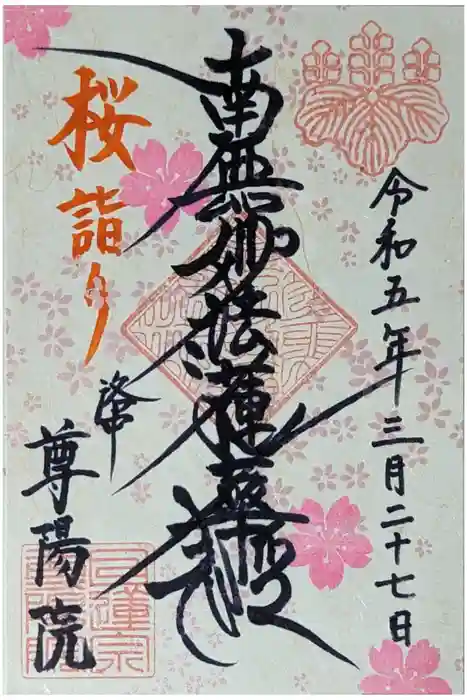 令和五年三月二十七日
南無妙法蓮華経
桜詣り
洛中
尊陽院